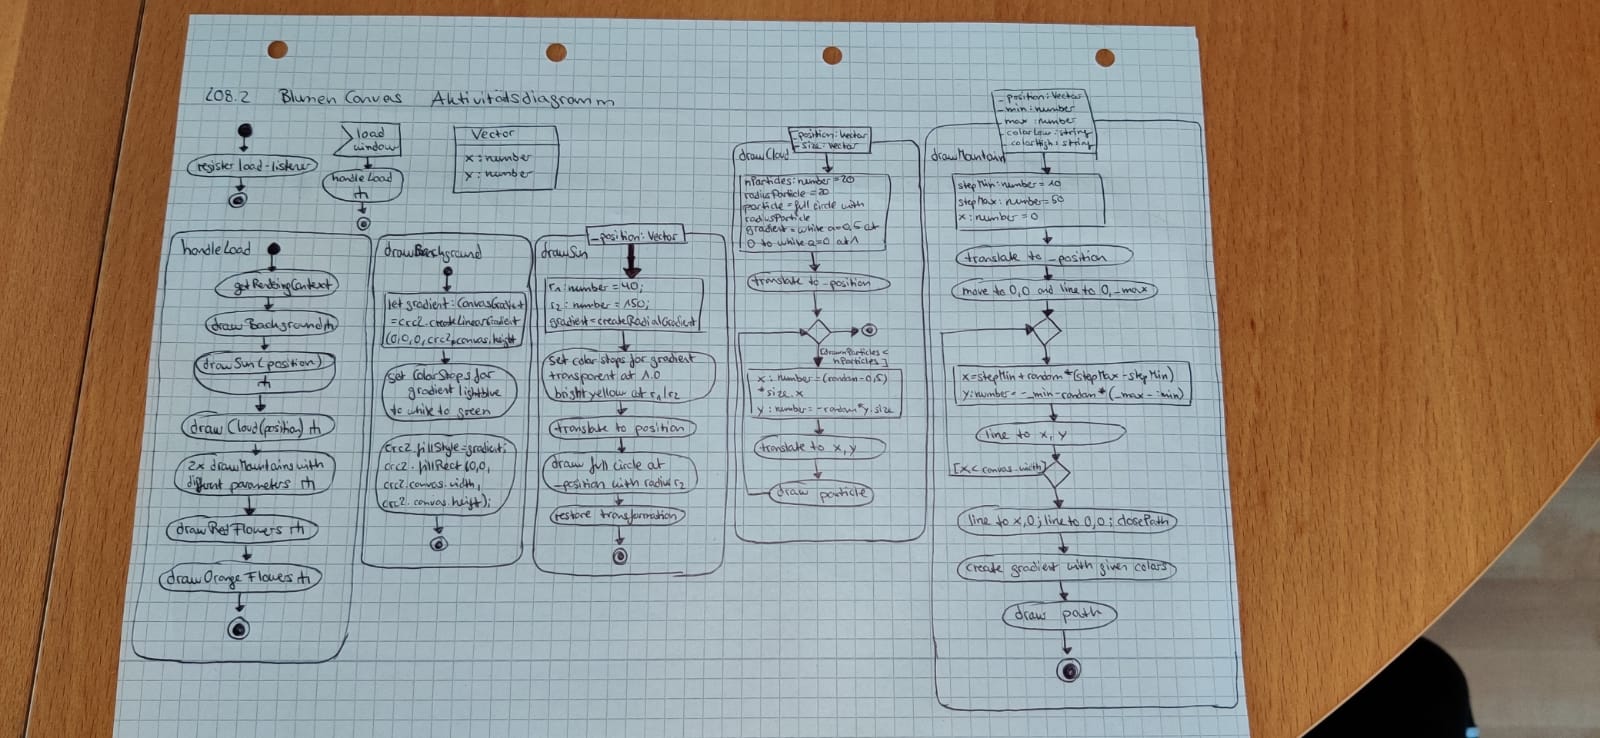 L08.2 Blumen Canvas Aktivitätsdiagramm
register load-listener
load
window
handleLoad
Vector
x: number
y: number
handleLoad
getRenderingContext
drawBackground
drawSun(position)
drawCloud(position)
2x drawMountains with
different parameters
drawRedFlowers
drawOrangeFlowers
drawBackground
let gradient: CanvasGradient
= crc2.createLinearGradient
(0,0,0, crc2.canvas.height
set ColorStops for
gradient lightblue
to white to green
crc2.fillStyle=gradient;
crc2.fillRect(0,0,
crc2.canvas.width,
crc2.canvas.height);
_position: Vector
drawSun
r1: number = 40;
r2: number = 150;
gradient=createRadialGradient
set color stops for gradient
transparent at 1.0
bright yellow at r1/r2
translate to position
draw full circle at
_position with radius r2
restore transformation
_position: Vector
_size: Vector
drawCloud
nParticles: number = 20
radiusParticle = 20
particle = full circle with
radiusParticle
gradient = white a=0,5 at
0 to white a=0 at 1
translate to _position
[drawnParticles <
nParticles]
x: number = (random - 0,5)
* size.x
y: number = -random*y.size
translate to x, y
draw particle
_position: Vector
_min: number
_max: number
_colorLow: string
_colorHigh: string
drawMountain
stepMin: number = 10
stepMax: number = 50
x: number = 0
translate to _position
move to 0,0 and line to 0,_max
x=stepMin+random*(stepMax-stepMin)
y:number = -_min-random*(_max-_min)
line to x, y
[x < canvas.width]
line to x,0; line to 0,0; closePath
create gradient with given colors
draw path